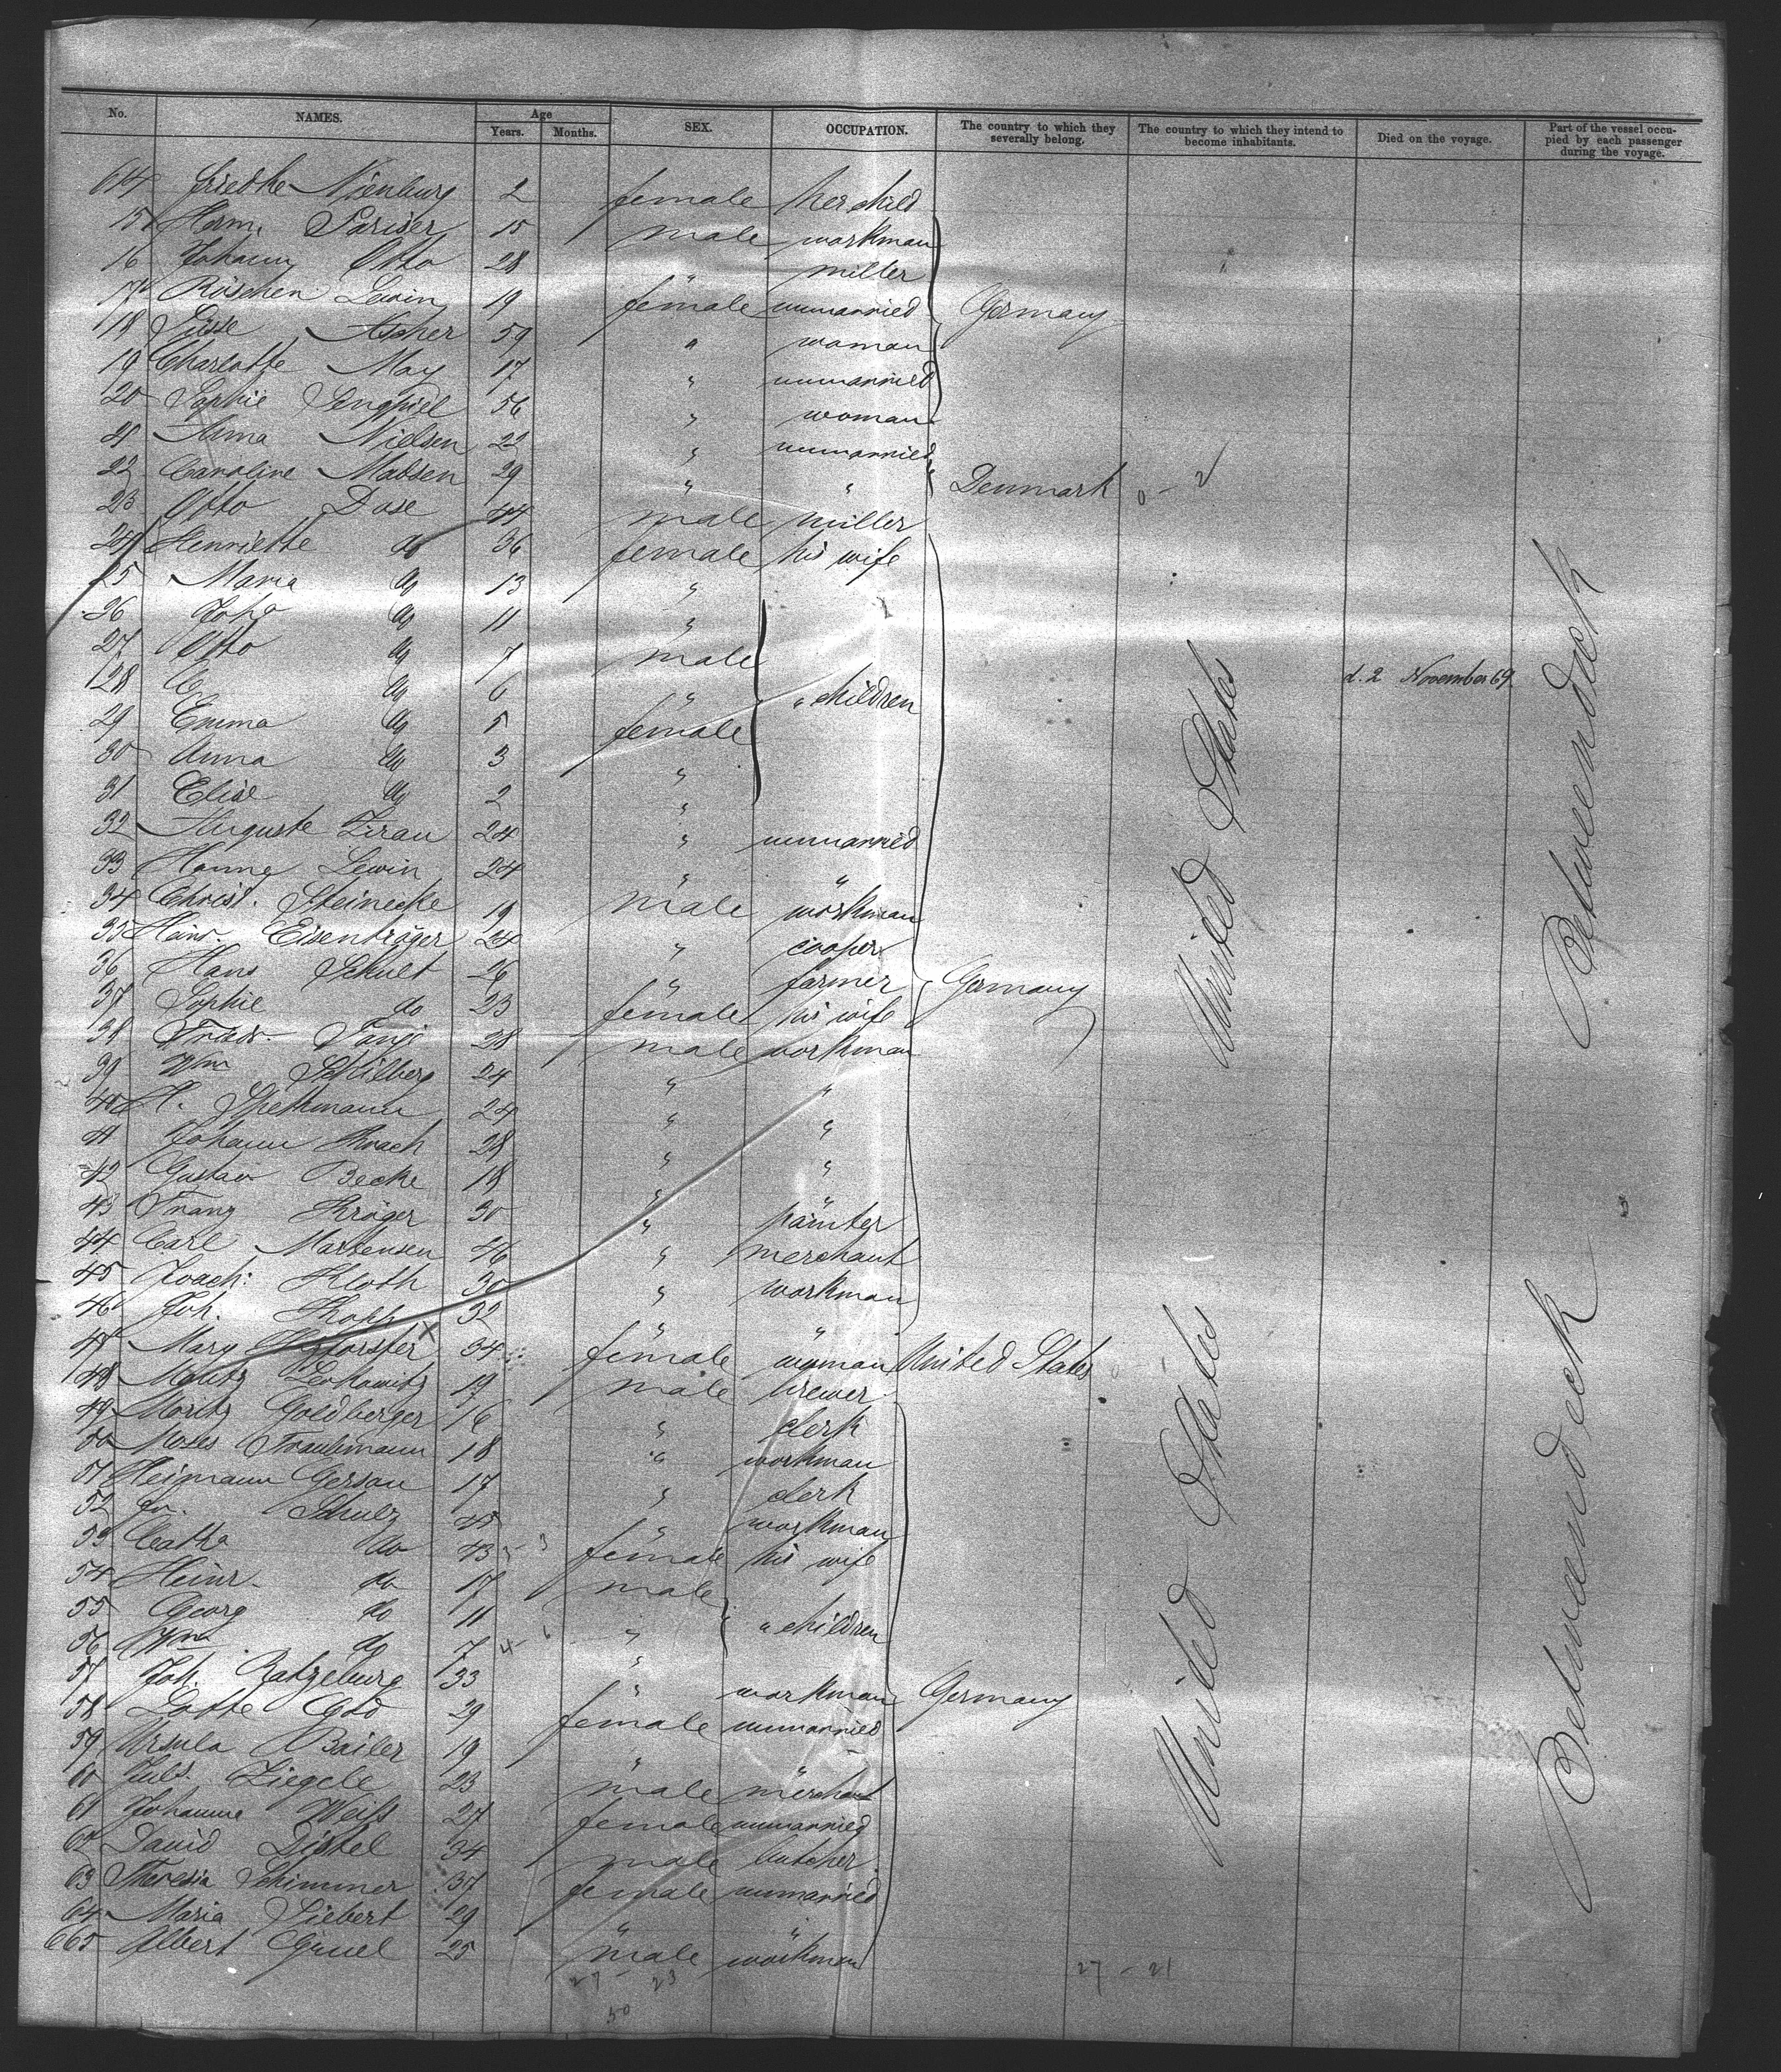 No. NAMES. Age Years. Months. SEX. OCCUPATION. The country to which they severally belong. The country to which they intend to become inhabitants. Died on the voyage. Part of the vessel occupied by each passenger during the voyage.
614 Friedke Nienburg 2 female her child
15 Herm. Pariser 15 male workman
16 Johann Otto 28 " miller
17 Röschen Lewin 19 female unmarried Germany
118 Süsse Ascher 59 " woman
19 Charlotte May 17 " unmarried
20 Sophie Sengpiel 56 " woman
21 Anna Nielsen 22 " unmarried
22 Caroline Madsen 29 " " Denmark
23 Otto Dose 44 male miller
24 Henriette do 36 female his wife
25 Maria do 13 "
26 Joha do 11 "
27 Otto do 7 male
128 C do 6 " " children d. 2 November 69
29 Emma do 5 female
30 Anna do 3 "
31 Elise do 2 "
32 Auguste Zirau 24 " unmarried
33 Hanne Lewin 24 " "
34 Christ. Steinecke 19 male workman
35 Heinr. Eisenträger 24 " cooper
36 Hans Schult 26 " farmer Germany
37 Sophie do 23 female his wife
38 Friedr. 28 male workman
39 Wm Schilberg 24 " "
40 H. Spethmann 24 " "
41 Johann 28 " "
42 Gustav Becke 18 "
43 Franz Kröger 30 " painter
44 Carl Martensen 46 " merchant
45 Joach: Kloth 30 " workman
46 Joh. Kopp 32 " "
47 Mary 34 female woman United States
148 Moritz 19 male brewer
49 Moritz Goldberger 16 " clerk
50 Moses Traubmann 18 " workman
51 Heimann Gerson 17 " clerk
52 Schulz 45 " workman
53 Catha do 43 female his wife
54 Heinr. do 17 male
55 Georg do 11 " " children
56 Wm do 7 "
57 Joh. Ratzeburg 33 " workman Germany
58 Lotte 29 female unmarried
59 Ursula Bailer 19 " "
60 Juls. Ziegele 23 male merchant
61 Johanne Weiss 27 female unmarried
62 David Distel 34 male butcher
63 Theresia Schimmer 37 female unmarried
64 Maria Siebert 29 " "
665 Albert 25 male workman
United States
United States
Betweendeck
Betweendeck
27 - 23
27 - 21
50